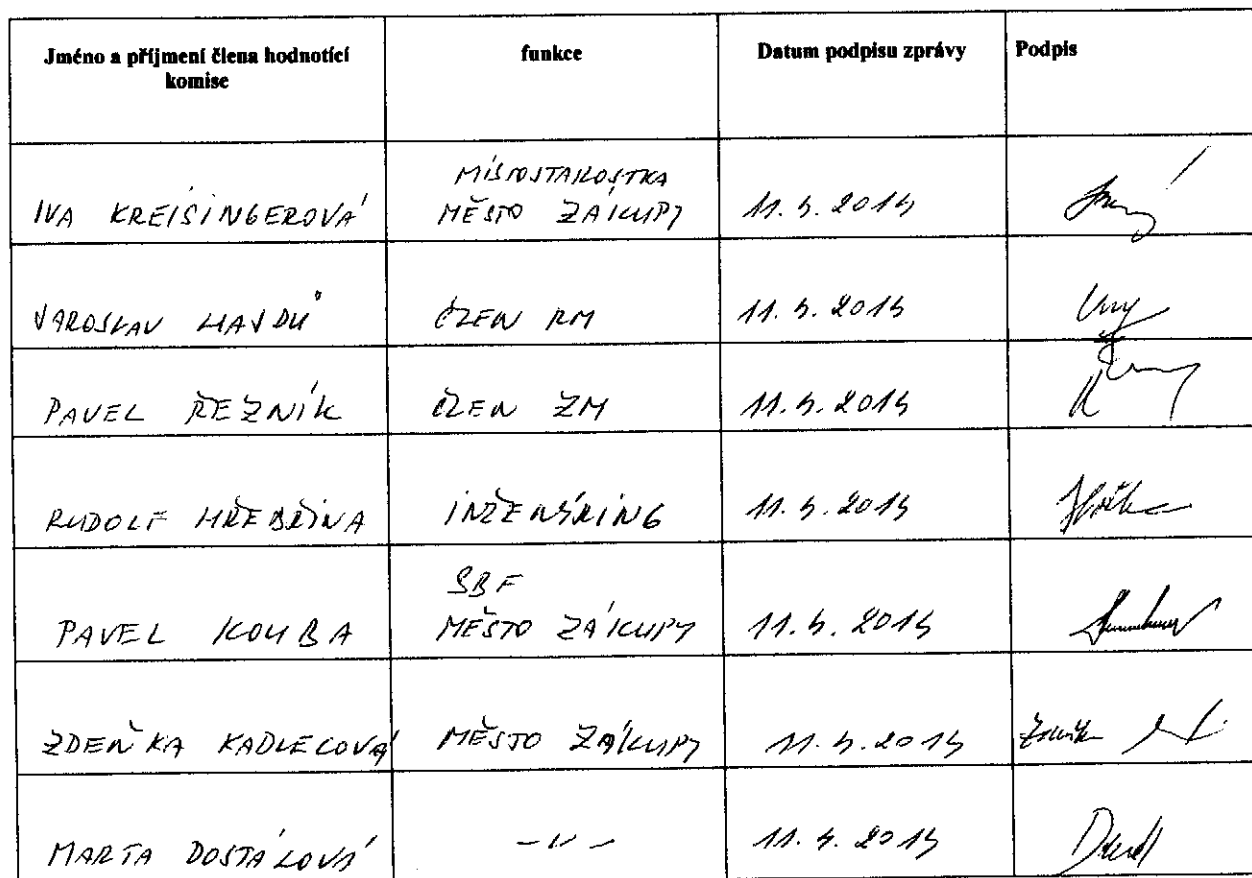 Jméno a příjmení člena hodnotící komise
funkce
Datum podpisu zprávy
Podpis
IVA KREISINGEROVÁ
MÍSTOSTAROSTKA
MĚSTO ZÁKUPY
11. 4. 2014
JAROSLAV HAJDŮ
ČLEN RM
11. 4. 2014
PAVEL ŘEZNÍK
ČLEN ZM
11. 4. 2014
RUDOLF HŘEBŘINA
INŽENÝRING
11. 4. 2014
PAVEL KOUBA
SBF
MĚSTO ZÁKUPY
11. 4. 2014
ZDEŇKA KADLECOVÁ
MĚSTO ZÁKUPY
11. 4. 2014
MARTA DOSTÁLOVÁ
-"-
11. 4. 2014